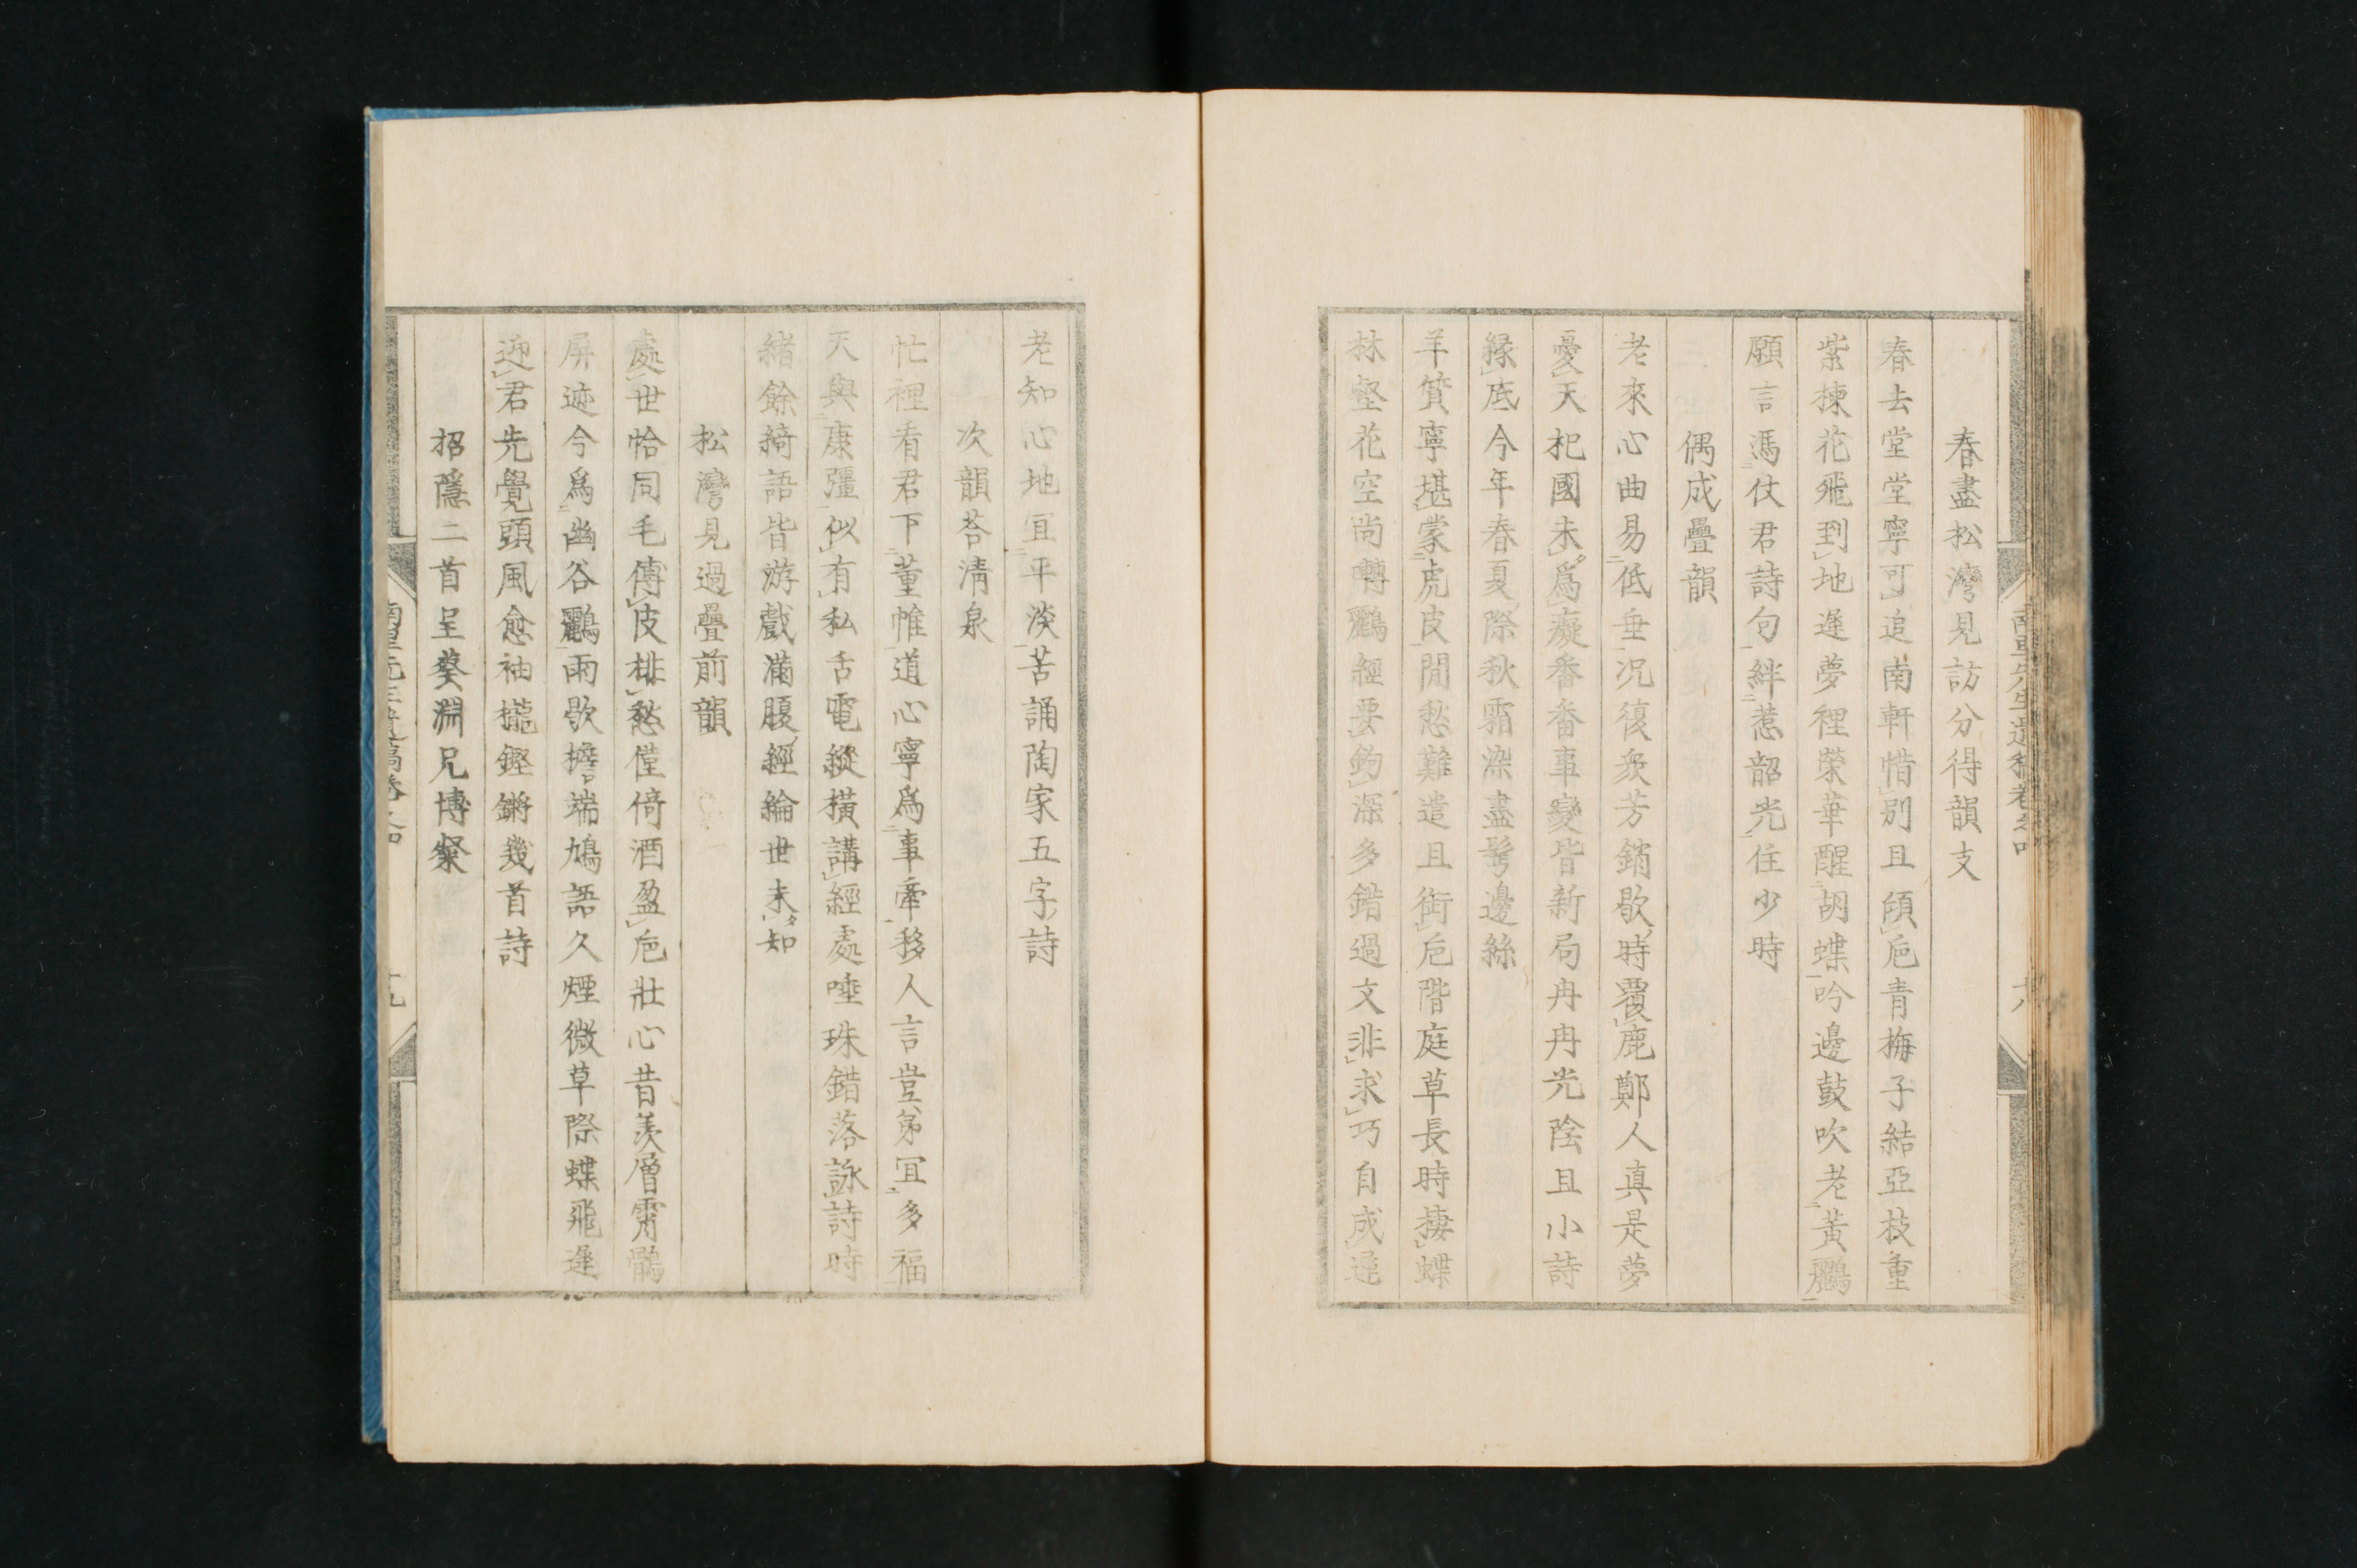 春盡松灣見訪分得韻支
春去堂堂寧可追南軒惜別且頎巵青梅子結亞枝重
紫楝花飛到地遲夢裡榮華醒胡蝶吟邊鼓吹老黃鸝
願言馮仗君詩句絆惹韶光住少時
偶成疊韻
老來心曲易低垂況復衆芳銷歇時覆鹿鄭人真是夢
憂天杞國未爲癡番番事變皆新局冉冉光陰且小詩
緣底今年春夏際秋霜染盡髩邊絲
羊質寧堪蒙虎皮閒愁難遣且銜巵階庭草長時捿蝶
林壑花空尚囀鸝經要鉤深多錯過文非求巧自成遲
老知心地冝平淡苦誦陶家五字詩
次韻荅淸泉
忙裡看君下董帷道心寧爲事牽移人言豈弟冝多福
天與康彊似有私舌電縱橫講經處唾珠錯落詠詩時
緒餘綺語皆游戲滿腹經綸世未知
松灣見過疊前韻
處世恰同毛傅皮排愁僅倚酒盈巵壯心昔羨層霄鶻
屏迹今爲幽谷鸝雨歇檐端鳩語久煙微草際蝶飛遲
迎君先覺頭風愈袖攏鏗鏘幾首詩
招隱二首呈葵淵兄博粲